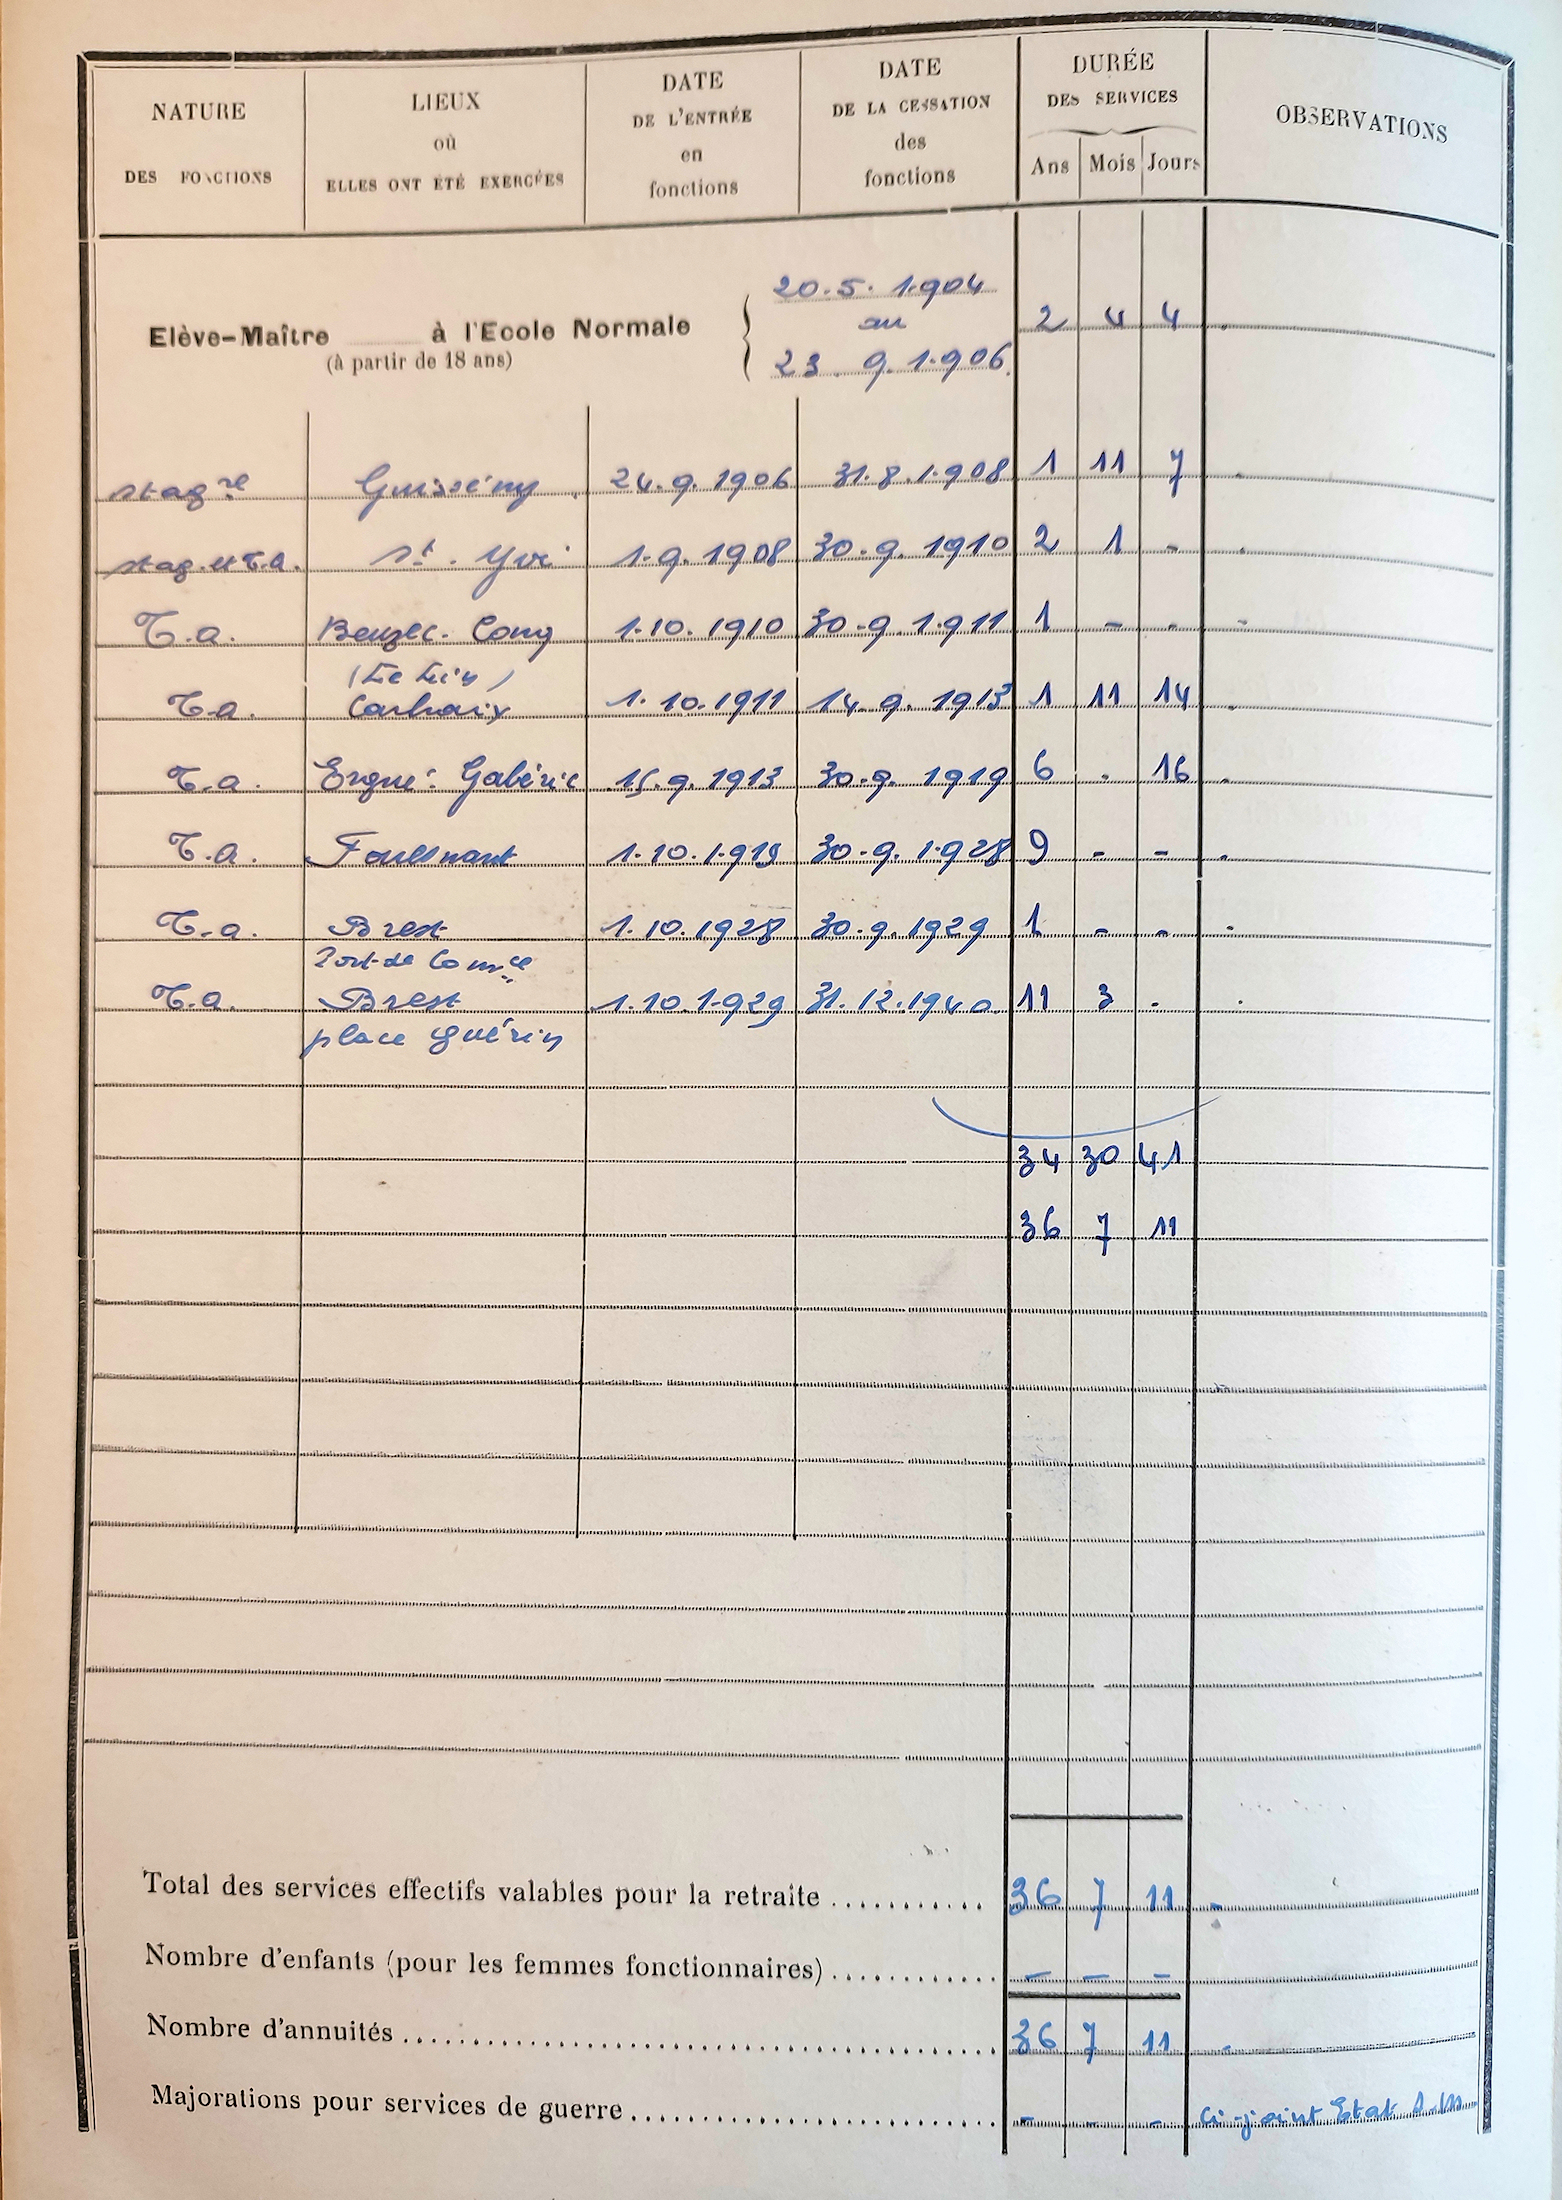 NATURE DES FONCTIONS
LIEUX où ELLES ONT ÉTÉ EXERCÉES
DATE DE L'ENTRÉE en fonctions
DATE DE LA CESSATION des fonctions
DURÉE DES SERVICES
Ans Mois Jours
OBSERVATIONS
20.5.1904
Elève-Maître à l'Ecole Normale au 2 4 4
(à partir de 18 ans) 23.9.1906
stagre Guissény 24.9.1906 31.8.1908 1 11 7
stag. et T.a. St. Yvi 1.9.1908 30.9.1910 2 1 -
T.a. Beuzec-Conq 1.10.1910 30.9.1911 1 - -
(Le Lin)
T.a. Carhaix 1.10.1911 14.9.1913 1 11 14
T.a. Ergué-Gabéric 15.9.1913 30.9.1919 6 - 16
T.a. Fouesnant 1.10.1919 30.9.1928 9 - -
T.a. Brest 1.10.1928 30.9.1929 1 - -
Port-de Comce
T.a. Brest 1.10.1929 31.12.1940 11 3 -
place Guérin
34 30 41
36 7 11
Total des services effectifs valables pour la retraite 36 7 11
Nombre d'enfants (pour les femmes fonctionnaires) - - -
Nombre d'annuités 36 7 11
Majorations pour services de guerre - - - ci-joint Etat